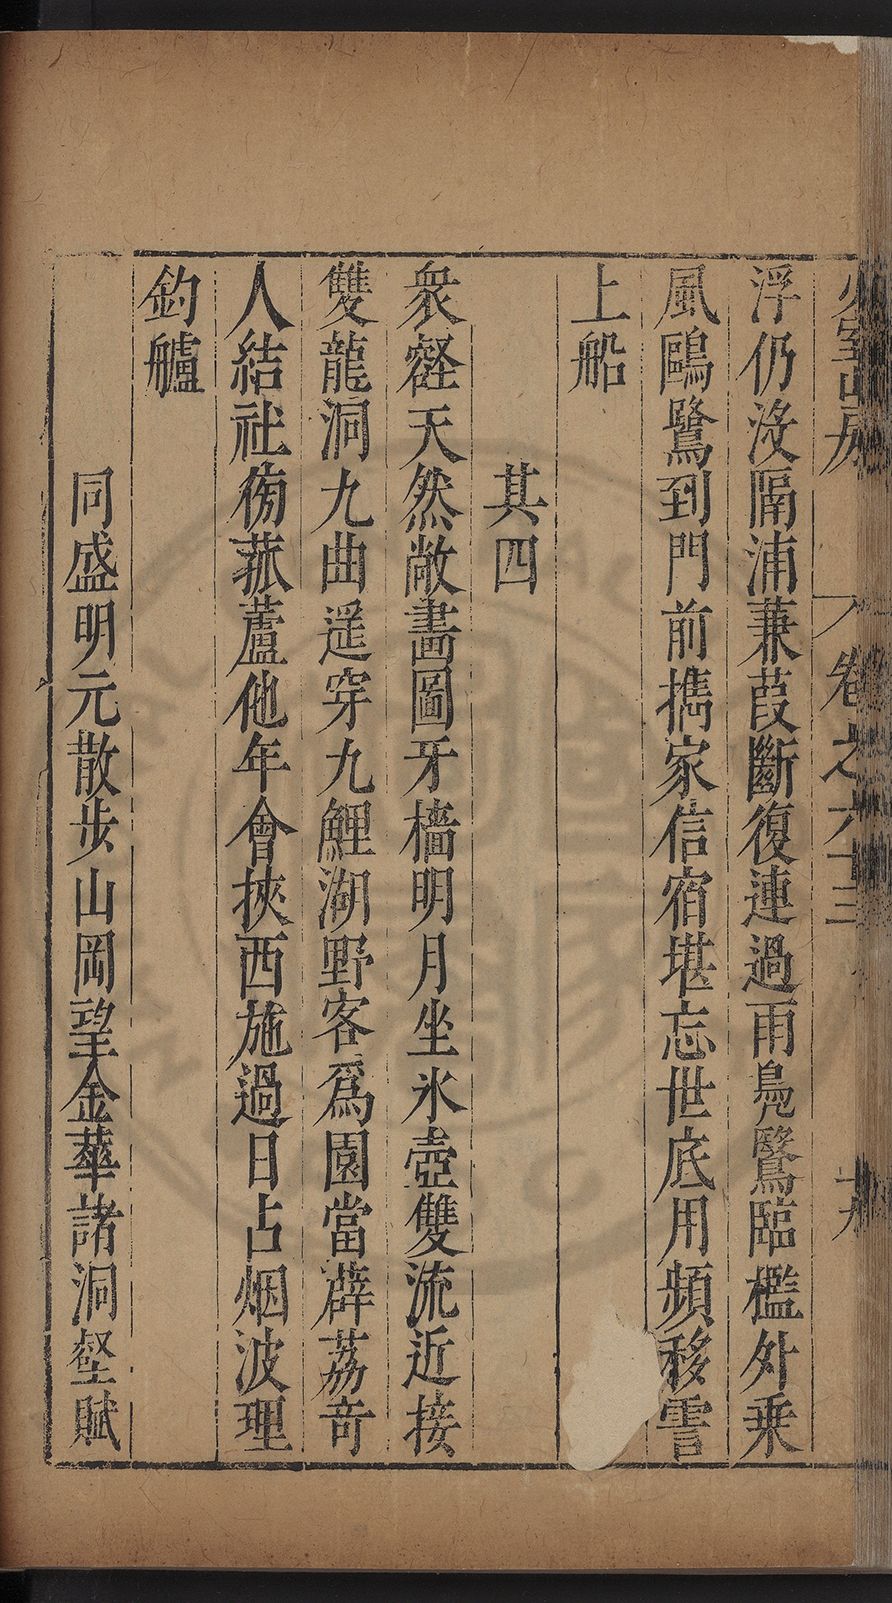 少室山房 卷之六十三 十九
浮仍沒隔浦蒹葭斷復連過雨鳧鷖臨檻外乗
風鷗鷺到門前擕家信宿堪忘世底用頻移霅
上船
其四
衆壑天然敞畫圖牙檣明月坐氷壺雙流近接
雙龍洞九曲遥穿九鯉湖野客爲園當薜荔竒
人結社傍菰蘆他年會挾西施過日占烟波理
釣艫
同盛明元散步山岡望金華諸洞壑賦